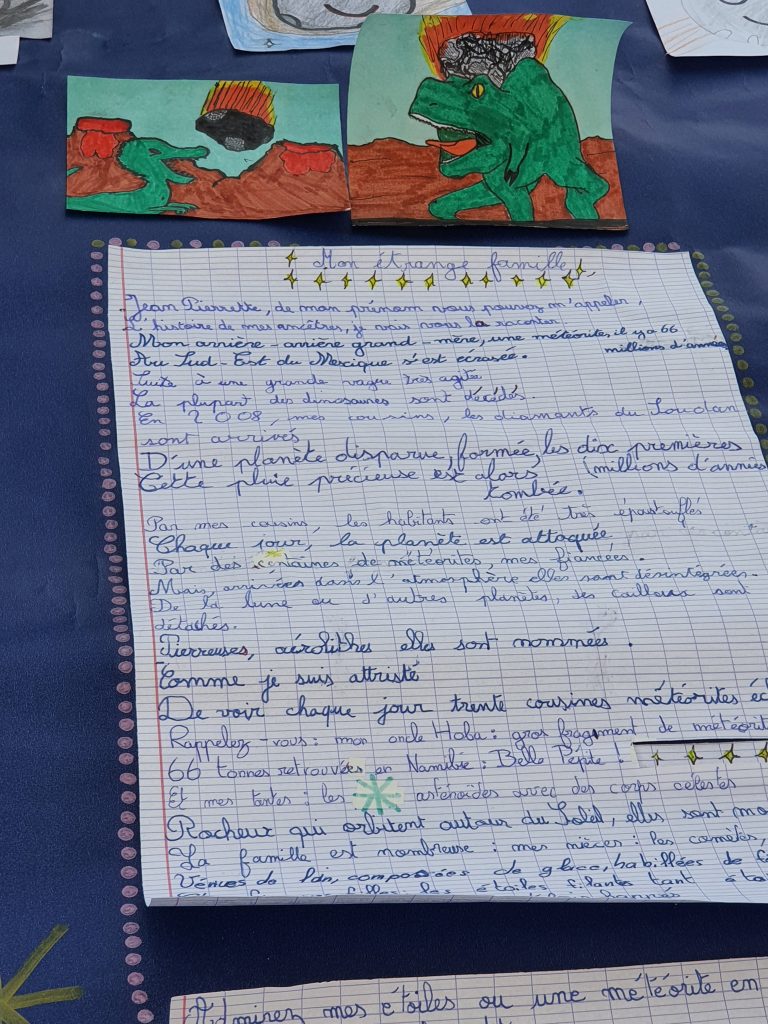 Mon étrange famille
Jean Pierrette, de mon prénom vous pouvez m'appeler,
L'histoire de mes ancêtres, je vais vous la raconter
Mon arrière-arrière grand-mère, une météorite, il y a 66
millions d'années
Au Sud-Est du Mexique s'est écrasée.
Suite à une grande vague très agitée
La plupart des dinosaures sont décédés
En 2008, mes cousins, les diamants du Soudan
sont arrivés
D'une planète disparue, formée, les dix premières
(millions d'années
Cette pluie précieuse est alors
tombée.
Par mes cousins, les habitants ont été très époustouflés
Chaque jour, la planète est attaquée
Par des centaines de météorites, mes fiancées.
Mais, arrivées dans l'atmosphère elles sont désintégrées.
De la lune ou d'autres planètes, des cailloux sont
détachés.
Pierreuses, aérolithes elles sont nommées.
Comme je suis attristé
De voir chaque jour trente cousines météorites
Rappelez-vous : mon oncle Hoba : gros fragment de
66 tonnes retrouvées en Namibie : Belle Pépite !
Et mes tantes : les astéroïdes avec des corps célestes
Rocheux qui orbitent autour du Soleil, elles sont
La famille est nombreuse : mes nièces : les comètes,
Venues de loin, composées de glace, habillées de
les étoiles filantes tant
Admirez mes étoiles ou une météorite en